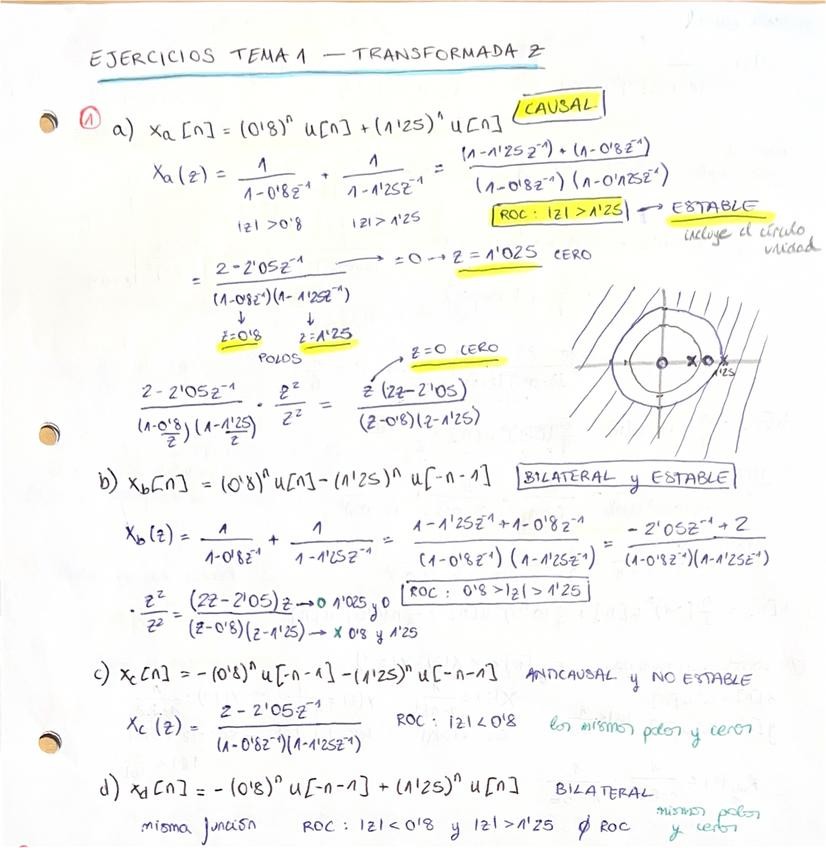 EJERCICIOS TEMA 1 — TRANSFORMADA Z
① a) xa[n] = (0'8)ⁿ u[n] + (1'25)ⁿ u[n] CAUSAL
Xa(z) = 1/(1-0'8z⁻¹) + 1/(1-1'25z⁻¹) = ((1-1'25z⁻¹) + (1-0'8z⁻¹))/((1-0'8z⁻¹)(1-0'125z⁻¹))
|z| > 0'8 |z| > 1'25 ROC: |z| > 1'25 → ESTABLE
incluye el círculo unidad
= (2-2'05z⁻¹)/((1-0'8z⁻¹)(1-1'25z⁻¹)) → =0 → z = 1'025 CERO
↓ ↓
z=0'8 z=1'25
POLOS
z=0 CERO
(2-2'05z⁻¹)/((1-0'8/z)(1-1'25/z)) · z²/z² = z(2z-2'05)/((z-0'8)(z-1'25))
1'25
b) xb[n] = (0'8)ⁿ u[n] - (1'25)ⁿ u[-n-1] BILATERAL y ESTABLE
Xb(z) = 1/(1-0'8z⁻¹) + 1/(1-1'25z⁻¹) = (1-1'25z⁻¹+1-0'8z⁻¹)/((1-0'8z⁻¹)(1-1'25z⁻¹)) = (-2'05z⁻¹+2)/((1-0'8z⁻¹)(1-1'25z⁻¹))
· z²/z² = (2z-2'05)z → o 1'025 y 0 / (z-0'8)(z-1'25) → x 0'8 y 1'25 ROC: 0'8 > |z| > 1'25
c) xc[n] = -(0'8)ⁿ u[-n-1] - (1'25)ⁿ u[-n-1] ANTICAUSAL y NO ESTABLE
Xc(z) = (2-2'05z⁻¹)/((1-0'8z⁻¹)(1-1'25z⁻¹)) ROC: |z| < 0'8 los mismos polos y ceros
d) xd[n] = -(0'8)ⁿ u[-n-1] + (1'25)ⁿ u[n] BILATERAL
misma función ROC: |z| < 0'8 y |z| > 1'25 ∅ ROC mismos polos y ceros